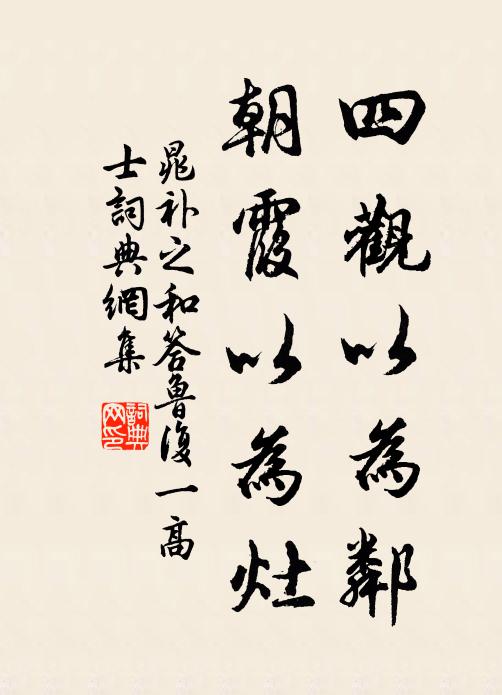 四觀以為鄰
朝霞以為灶
晁补之和答魯復一高
士詞典網集
詞典
网印